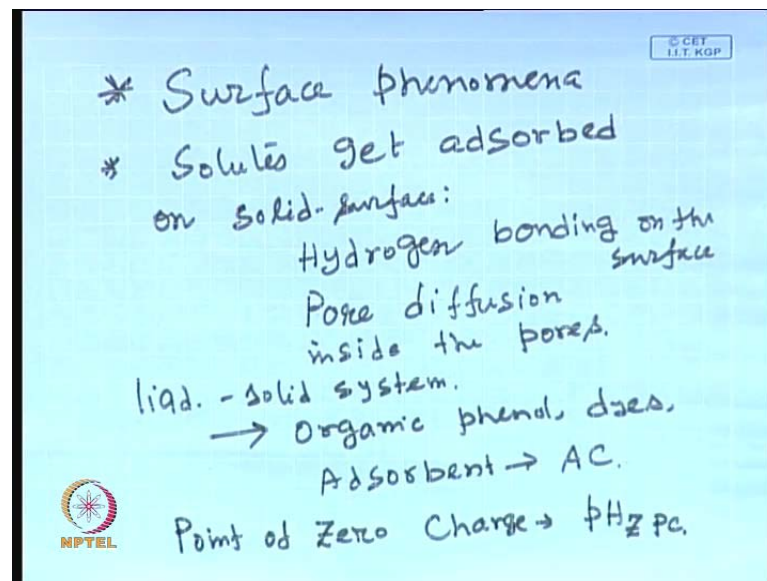 © CET
I.I.T. KGP
* Surface phenomena
* Solutes get adsorbed
on solid-surface:
Hydrogen bonding on the
surface
Pore diffusion
inside the pores.
liqd. - solid system.
→ Organic phenol, dyes,
Adsorbent → AC.
Point of Zero Charge → pHZPC.
NPTEL